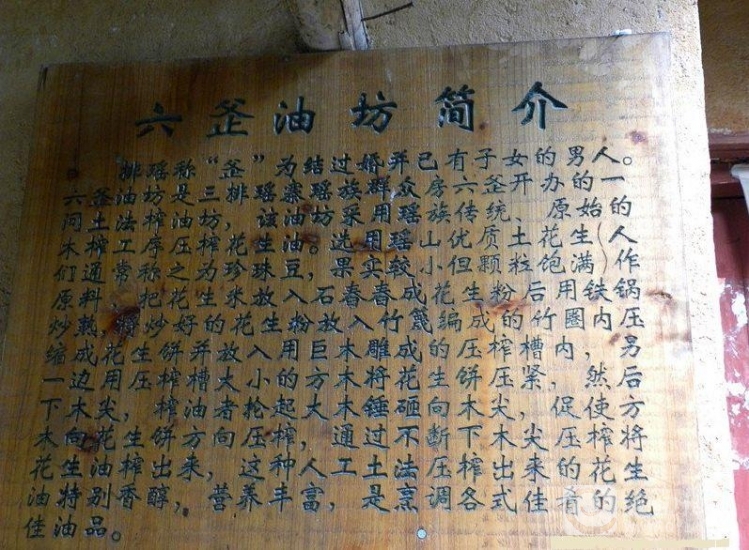 六釜油坊简介
排瑶称“釜”为结过婚并已有子女的男人。
六釜油坊是三排瑶寨瑶族群众房六釜开办的一
间土法榨油坊，该油坊采用瑶族传统、原始的
木榨工序压榨花生油。选用瑶山优质土花生（人
们通常称之为珍珠豆，果实较小但颗粒饱满）作
原料，把花生米放入石舂舂成花生粉后用铁锅
炒熟，将炒好的花生粉放入竹篾编成的竹圈内压
缩成花生饼并放入用巨木雕成的压榨槽内，另
一边用压榨槽大小的方木将花生饼压紧，然后
下木尖，榨油者抡起大木锤砸向木尖，促使方
木向花生饼方向压榨，通过不断下木尖压榨将
花生油榨出来，这种人工土法压榨出来的花生
油特别香醇，营养丰富，是烹调各式佳肴的绝
佳油品。